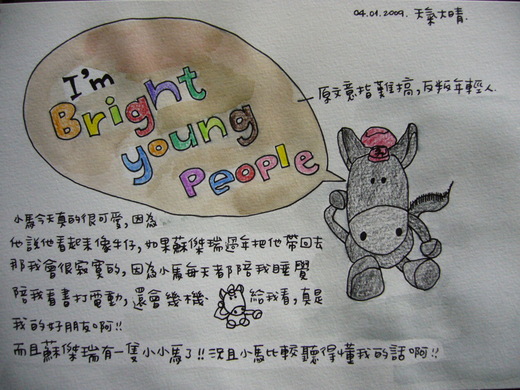 04.01.2009. 天氣大晴.
I'm
Bright
young
People
原文意指難搞,反叛年輕人.
小馬今天真的很可愛,因為
他說他看起來像牛仔,如果蘇傑瑞過年把他帶回去
那我會很寂寞的,因為小馬每天都陪我睡覺
陪我看書打電動,還會幾機 給我看,真是
我的好朋友啊!!
而且蘇傑瑞有一隻小小馬了!!況且小馬比較聽得懂我的話啊!!